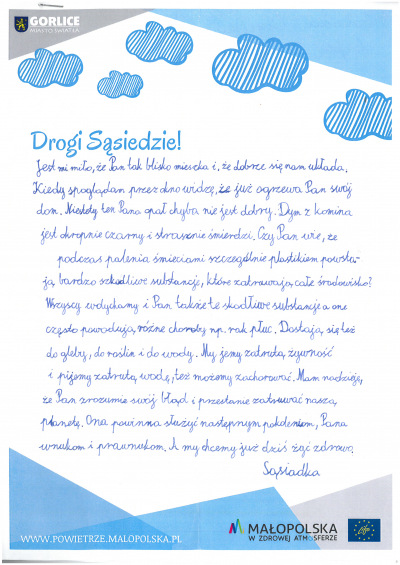 GORLICE
MIASTO ŚWIATŁA
Drogi Sąsiedzie!
Jest mi miło, że Pan tak blisko mieszka i, że dobrze się nam układa.
Kiedy spoglądam przez okno widzę, że już ogrzewa Pan swój
dom. Niestety ten Pana opał chyba nie jest dobry. Dym z komina
jest okropnie czarny i strasznie śmierdzi. Czy Pan wie, że
podczas palenia śmieciami szczególnie plastikiem powsta-
ją bardzo szkodliwe substancje, które zatruwają całe środowisko?
Wszyscy wdychamy i Pan także te szkodliwe substancje a one
często powodują różne choroby np. rak płuc. Dostają się też
do gleby, do roślin i do wody. My jemy zatrutą żywność
i pijemy zatrutą wodę, też możemy zachorować. Mam nadzieję,
że Pan zrozumie swój błąd i przestanie zatruwać naszą
planetę. Ona powinna służyć następnym pokoleniom, Pana
wnukom i prawnukom. A my chcemy już dziś żyć zdrowo.
Sąsiadka
WWW.POWIETRZE.MALOPOLSKA.PL
MAŁOPOLSKA
W ZDROWEJ ATMOSFERZE